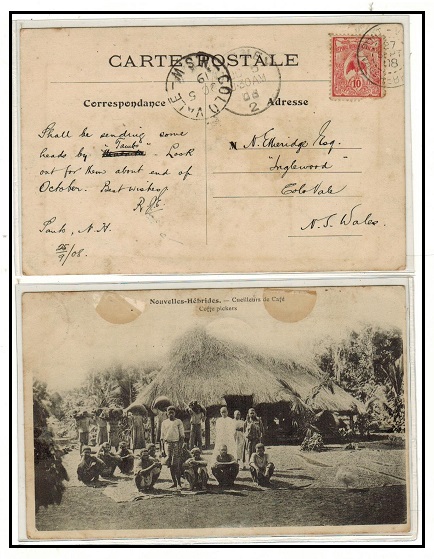 CARTE POSTALE
Correspondance
Adresse
Shall be sending some
heads by "Tambo". Look
out for them about end of
October. Best wishes
N. Etheridge Esq.
"Inglewood"
Colo Vale
N. S. Wales.
N. H.
25/9/08.
COLO VALE
10
27
08
Nouvelles-Hébrides. — Cueilleurs de Café
Coffe pickers